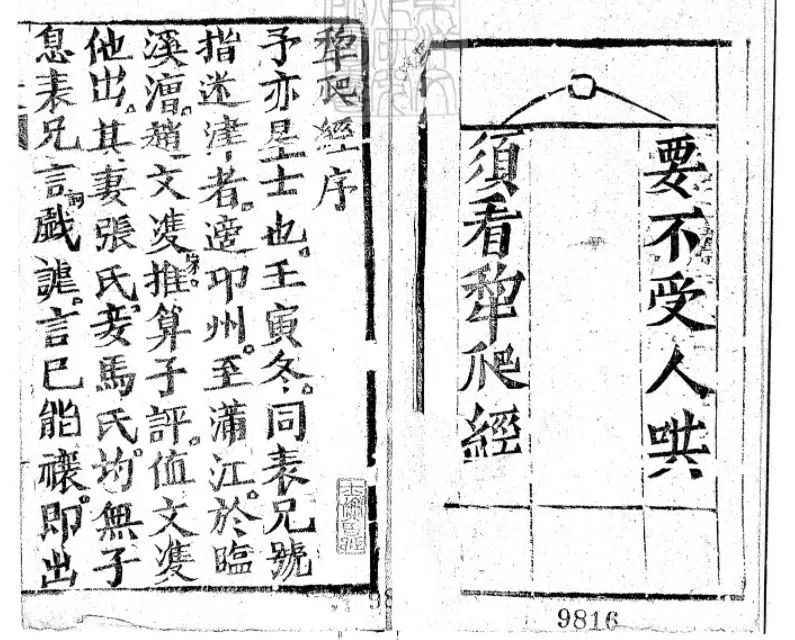 要不受人哄
須看犂爬經
犂爬經序
予亦星士也。壬寅冬。同表兄號
指迷津者。遊卭州。至蒲江。於臨
溪漕。趙文𨕖推算子評。值文𨕖
他出。其妻張氏。妾馬氏。均無子
息表兄言戯謔。言巳能禳。即出
9816